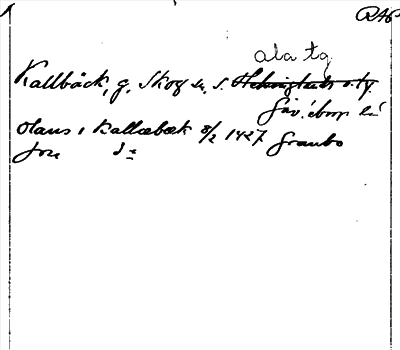 RAP
ala tg
Kallbäck, g. Skog sn, S. Helsinglands v. tg.
Gävleborgs län
Olaus i Kallabæk 8/2 1427 Granbo
Jon d:o